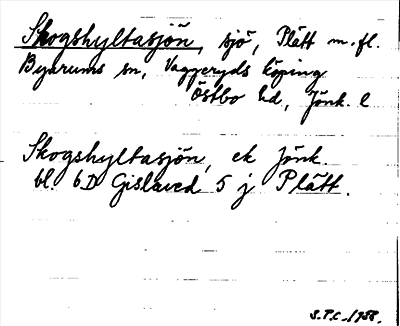 Skogshyltasjön, sjö, Plätt m.fl.
Byarums sn, Vaggeryds köping
Östbo hd, Jönk. l
Skogshyltasjön, ek Jönk.
bl. 6D Gislaved 5 j Plätt.
S.P.C. 1958.